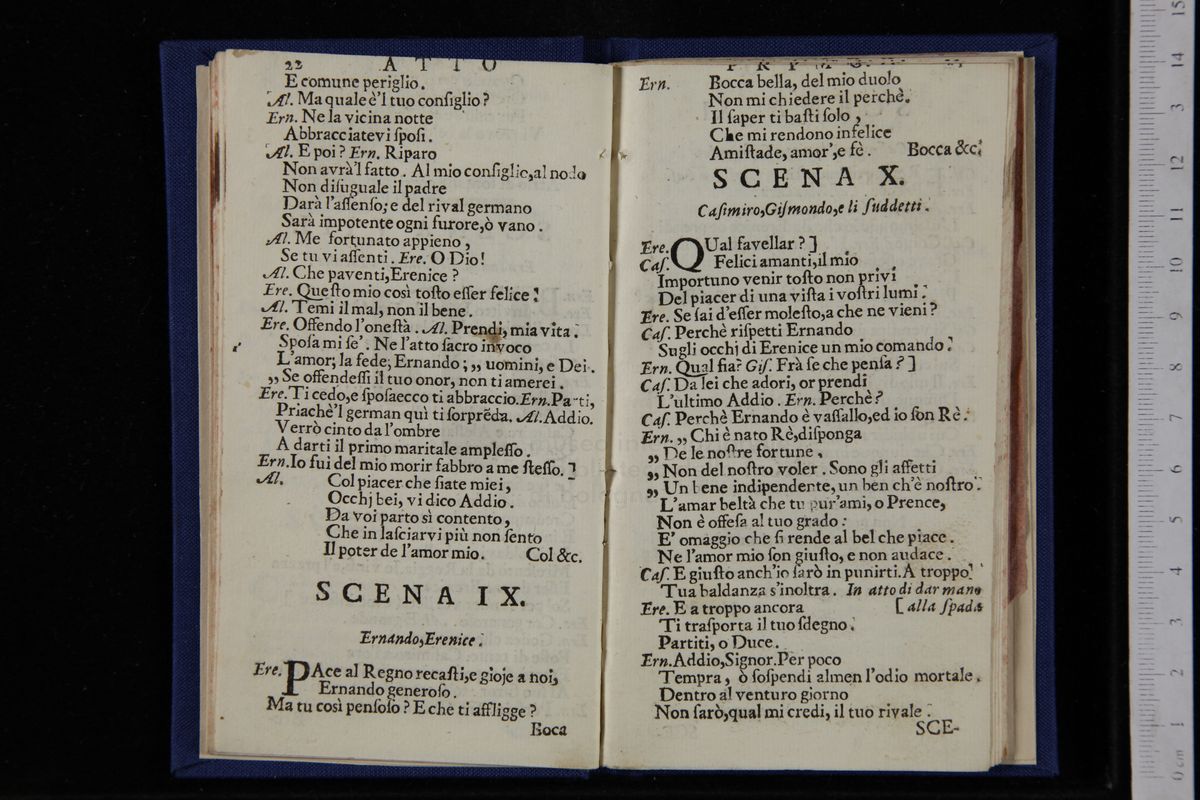 22 ATTO
E comune periglio.
Al. Ma quale è'l tuo conſiglio?
Ern. Ne la vicina notte
Abbracciatevi ſpoſi.
Al. E poi? Ern. Riparo
Non avrà'l fatto. Al mio conſiglio, al nodo
Non diſuguale il padre
Darà l'aſſenſo; e del rival germano
Sarà impotente ogni furore, ò vano.
Al. Me fortunato appieno,
Se tu vi aſſenti. Ere. O Dio!
Al. Che paventi, Erenice?
Ere. Queſto mio così toſto eſſer felice.
Al. Temi il mal, non il bene.
Ere. Offendo l'oneſtà. Al. Prendi, mia vita.
Spoſa mi ſe'. Ne l'atto ſacro invoco
L'amor; la fede; Ernando; „ uomini, e Dei.
„ Se offendeſſi il tuo onor, non ti amerei.
Ere. Ti cedo, e ſpoſa ecco ti abbraccio. Ern. Parti,
Priachè'l german quì ti ſorprẽda. Al. Addio.
Verrò cinto da l'ombre
A darti il primo maritale ampleſſo.
Ern. Io fui del mio morir fabbro a me ſteſſo. ]
Al. Col piacer che ſiate miei,
Occhj bei, vi dico Addio.
Da voi parto sì contento,
Che in laſciarvi più non ſento
Il poter de l'amor mio. Col &c.
SCENA IX.
Ernando, Erenice.
Ere. PAce al Regno recaſti, e gioje a noi,
Ernando generoſo.
Ma tu così penſoſo? E che ti affligge?
Boca
PRIMO.
Ern. Bocca bella, del mio duolo
Non mi chiedere il perchè.
Il ſaper ti baſti ſolo,
Che mi rendono infelice
Amiſtade, amor', e fè. Bocca &c.
SCENA X.
Caſimiro, Giſmondo, e li ſuddetti.
Ere. QUal favellar? ]
Caſ. Felici amanti, il mio
Importuno venir toſto non privi
Del piacer di una viſta i voſtri lumi.
Ere. Se ſai d'eſſer moleſto, a che ne vieni?
Caſ. Perchè riſpetti Ernando
Sugli occhj di Erenice un mio comando.
Ern. Qual fia? Giſ. Frà ſe che penſa? ]
Caſ. Da lei che adori, or prendi
L'ultimo Addio. Ern. Perchè?
Caſ. Perchè Ernando è vaſſallo, ed io ſon Rè.
Ern. „ Chi è nato Rè, diſponga
„ De le noſtre fortune,
„ Non del noſtro voler. Sono gli affetti
„ Un bene indipendente, un ben ch'è noſtro.
L'amar beltà che tu pur'ami, o Prence,
Non è offeſa al tuo grado:
E' omaggio che ſi rende al bel che piace.
Ne l'amor mio ſon giuſto, e non audace.
Caſ. E giuſto anch'io ſarò in punirti. A troppo
Tua baldanza s'inoltra. In atto di dar mano
Ere. E a troppo ancora [ alla ſpada
Ti traſporta il tuo ſdegno.
Partiti, o Duce.
Ern. Addio, Signor. Per poco
Tempra, ò ſoſpendi almen l'odio mortale.
Dentro al venturo giorno
Non ſarò, qual mi credi, il tuo rivale.
SCE-